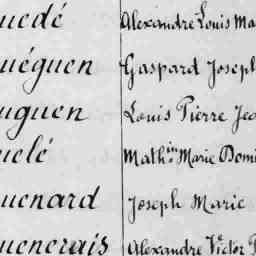 uedé Alexandre Louis Ma
uéguen Gaspard Joseph
uguen Louis Pierre Jea
uelé Math.in Marie Domi
uenard Joseph Marie
uenerais Alexandre Victor